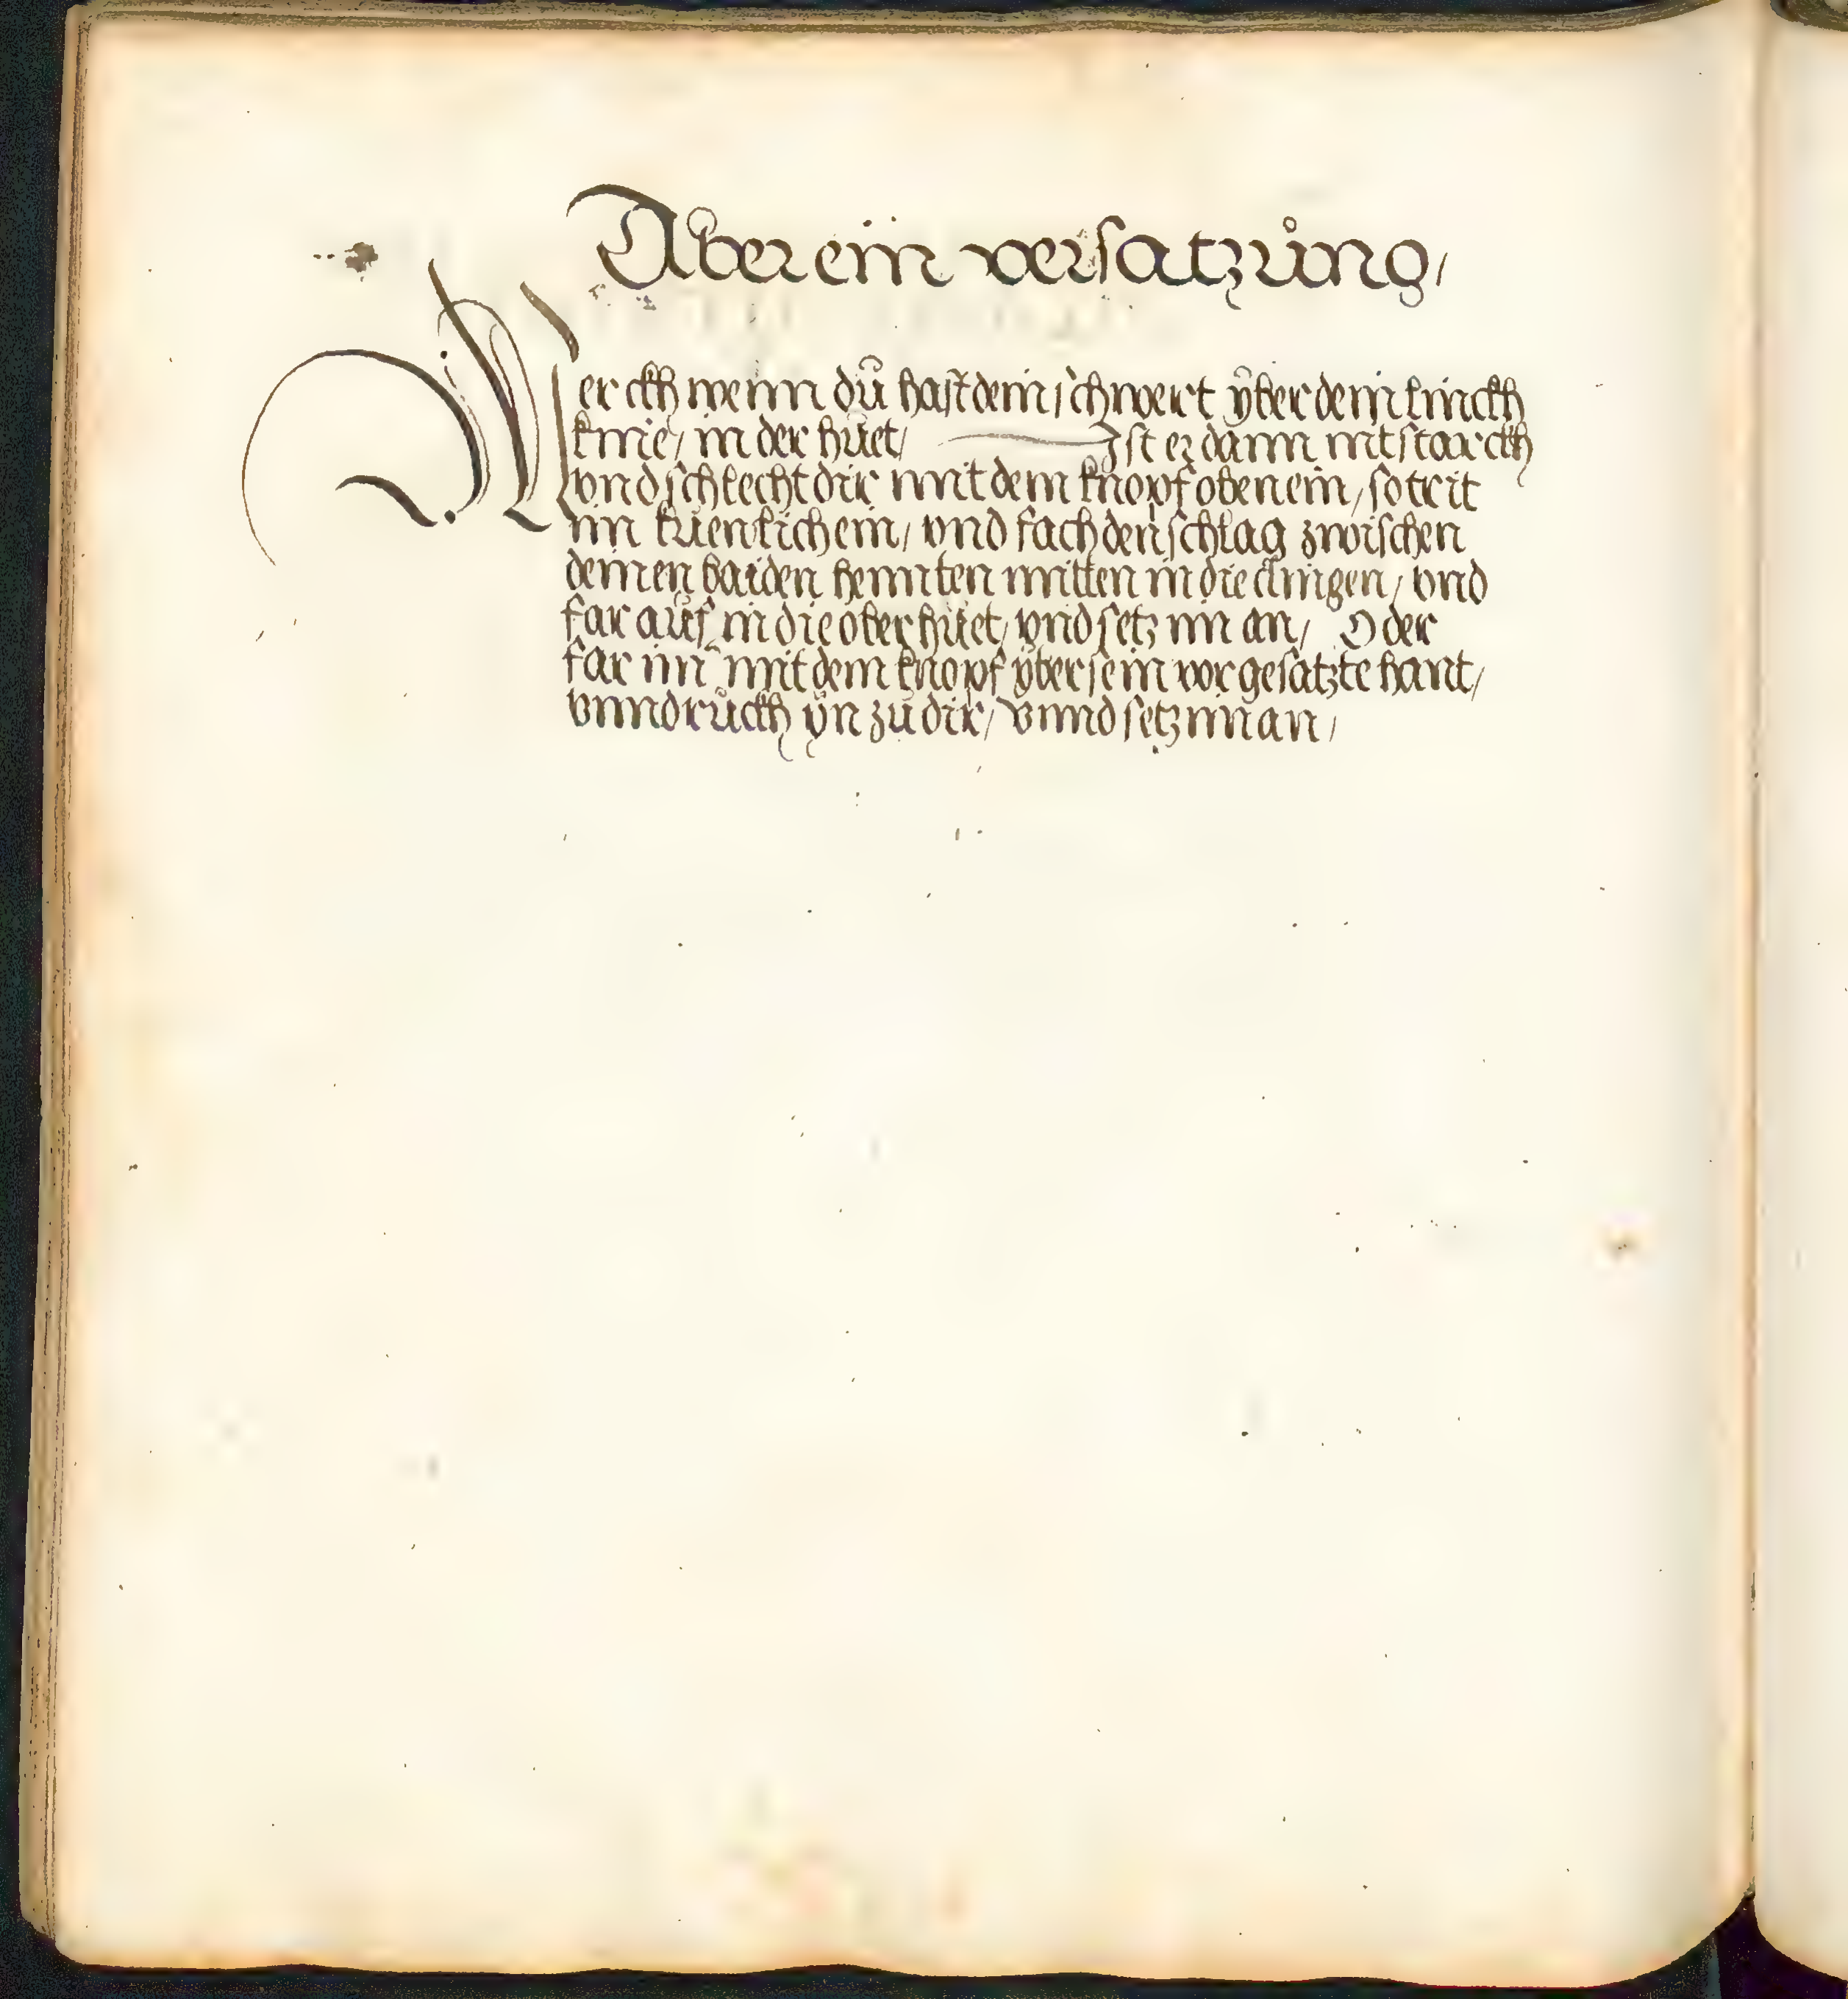 Aber ein versatzůng/
Merckh wenn dů hast dein schwert ÿber dem linckh
knie/ in der hůet/ Ist ez dann nit starckh
vnd schlecht dir mit dem knopf oben ein/ so trit
im kůenlich ein/ vnd fach den schlag zwischen
deinen baiden hennten mitten in die clingen/ vnd
far aůf in die ober hůet/ vnd setz im an/ Oder
far im mit dem knopf ÿber sein vor gesatzte hant/
vnnd růckh ÿn zů dir/ vnnd setz im an/